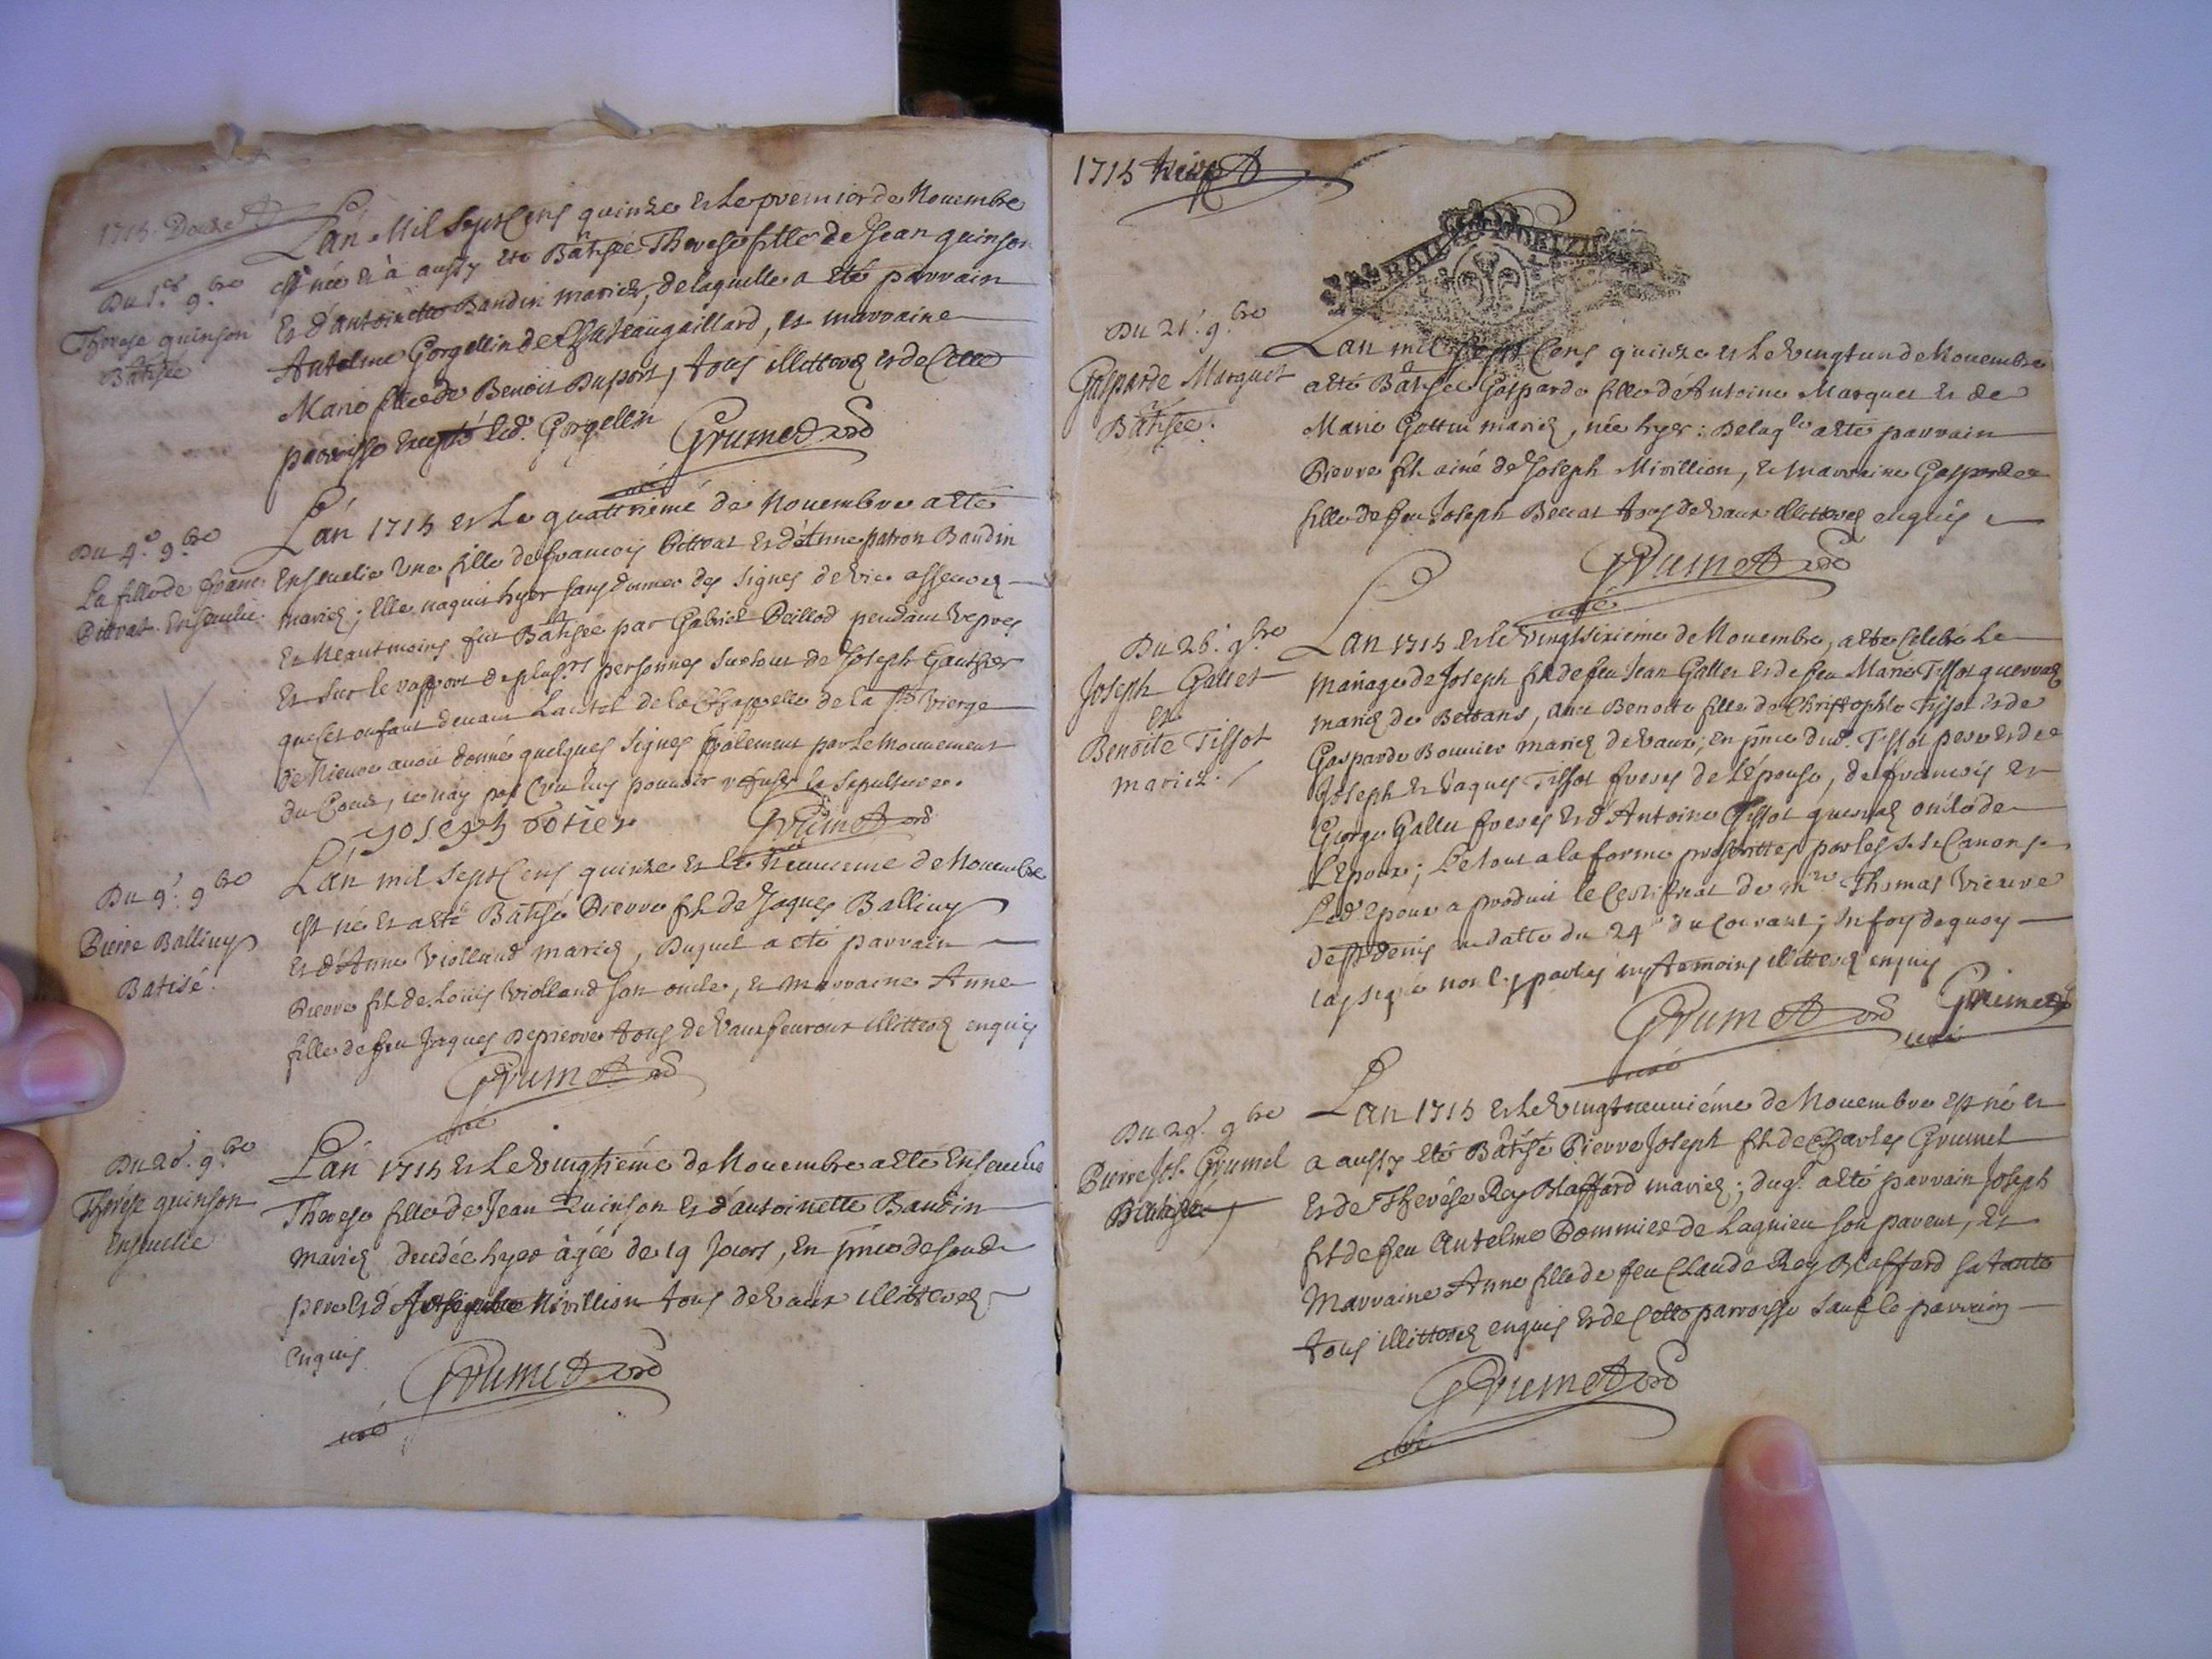 1715. Douze
Du 1.er 9.bre
Therese quinson
Batisée
Lán Mil Sept Cens quinze et Le premier de Novembre
est née et à aussy eté Batisée Therese fille de Jean quinson
et d'Antoinette Baudin mariez, de laquelle a eté parrain
Antelme Gorgellin de Chateaugaillard, et marraine
Marie fille de Benoit Dupont, tous illitterez et de Cette
parroisse Excepté led. Gorgellin
Grumet
curé
Du 4.e 9.bre
La fille de franc.
Bittrat Ensevelie.
Lán 1715 et Le quattrieme de Novembre a eté
Ensevelie Une fille de francois Bittrat et d'Anne patron Baudin
mariez; Elle naquit hyer sans donner des signes de vie assurez
et Neantmoins fut Batisée par Gabriel Beillod pendant vepres
et sur le rapport de plus.rs personnes surtout de Joseph Gauthier
que cet enfant devant L'autel de la Chappelle de la s.te Vierge
de Nievre avoit donné quelques signes par Le Mouvement
du Coeur, je n'ay pas Cru luy pouvoir refuser la sepulture.
Joseph
Grumet
curé
Du 9.e 9.bre
Pierre Balliny
Batisé.
Lán mil sept Cens quinze et le neuvieme de Novembre
est né et a eté Batisé Pierre fils de Jaques Balliny
et d'Anne Violland mariez, Duquel a eté parrain
Pierre fils de Louis Violland son oncle, et marraine Anne
fille de feu Jaques Depierre tous de Vaux illitterez enquis
Grumet
curé
Du 20.e 9.bre
Therése quinson
Ensevelie
Lán 1715 et Le vingtiéme de Novembre a eté Ensevelie
Therese fille de Jean Quinson et d'antoinette Baudin
mariez decedée hyer àgée de 19 Jours, En p̃nce de son d.
pere et d' Mivillion tous de Vaux illitterez
enquis.
Grumet
curé
1715 treize
GENERAL
Du 21.e 9.bre
Gasparde Marquet
Batisée.
Lan mil sept Cens quinze et Le vingt un de Novembre
a eté Batisée Gasparde fille d'Antoine Marquet et de
Marie Gottin mariez, née hyer: Delaq.le a eté parrain
Pierre fils ainé de Joseph Mivillion, et marraine Gasparde
fille de feu Joseph tous de Vaux illitterez enquis
Grumet
curé
Du 26.e 9.bre
Joseph Gallet
et
Benoite Tissot
mariez.
Lan 1715 et le vingtsixieme de Novembre, a eté Celebré Le
mariage de Joseph fils de feu Jean Gallet et de feu Marie Tissot
mariez de Bettans, avec Benoite fille de Christophle Tissot et de
Gasparde Bouvier mariez de Vaux; En p̃nce dud. Tissot pere et de
Joseph et Jaques Tissot freres de L'épouse, de francois et
George Gallet freres et d'Antoine Tissot oncle de
L'époux; Le tout a la forme prescritte par les s.ts Canons
Led. epoux a produit le Certificat de m.re Thomas Vicaire
de s.t denis en datte du 24.e du Courant; En foy de quoy
j'ay signé non les parties ny temoins illitterez enquis
Grumet Grumet
curé curé
Du 29.e 9.bre
Pierre Jos. Grumel
Batisé
Lan 1715 et Le vingtneuviéme de Novembre est né et
a aussy eté Batisé Pierre Joseph fils de Charles Grumel
et de Therése Rey Blaffard mariez; duq.l a eté parrain Joseph
fils de feu Antelme Pommier de Lagnieu son parent, et
Marraine Anne fille de feu Claude Rey Blaffard sa tante
tous illitterez enquis et de Cette parroisse sauf le parrain
Grumet
curé